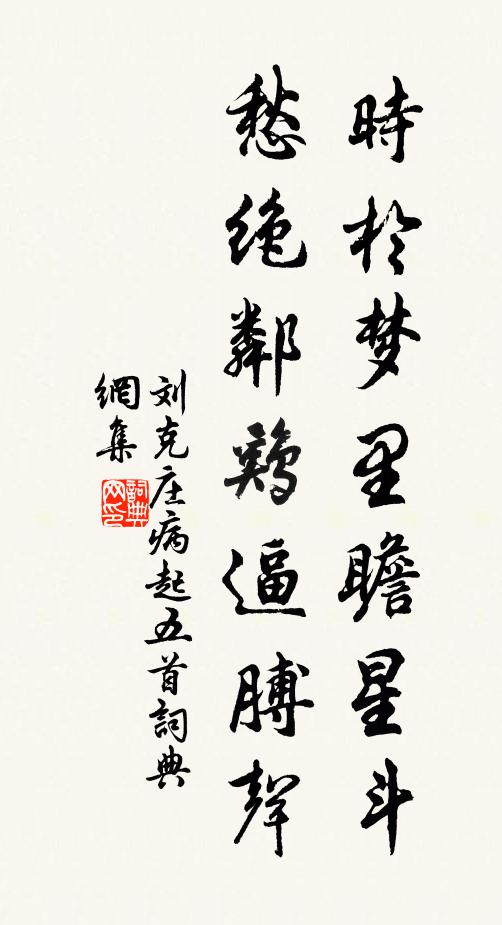 時於梦里瞻星斗
愁绝鄰鷄逼膊聲
刘克庄病起五首詞典
網集
詞典
网印